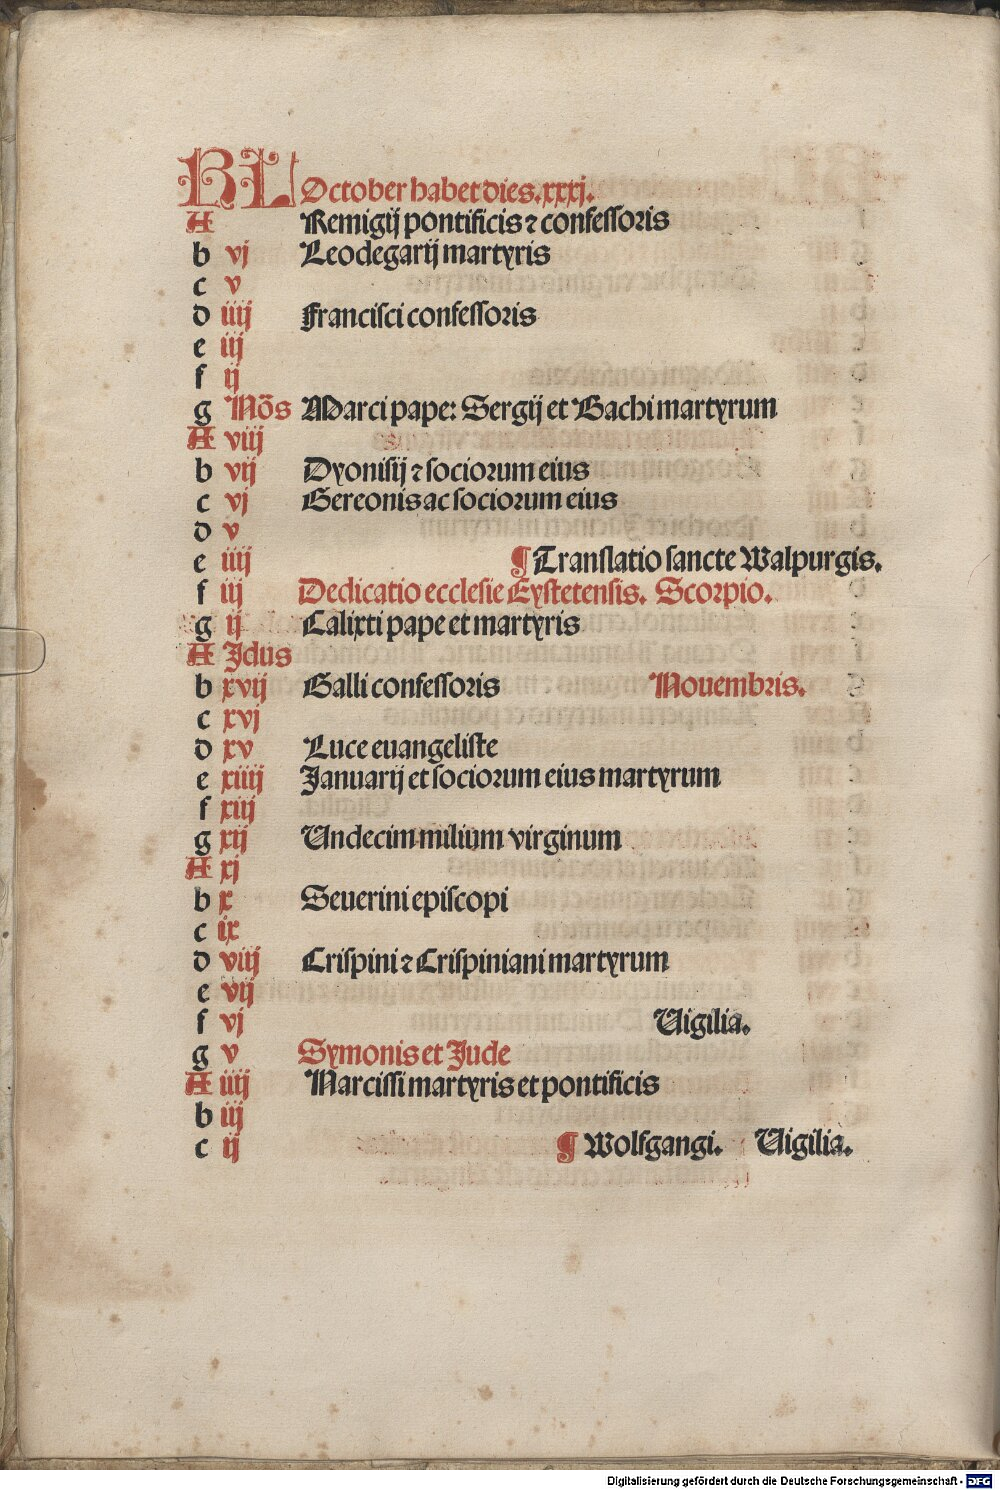 KL October habet dies.xxxj.
A Remigij pontificis ⁊ confessoris
b vj Leodegarij martyris
c v
d iiij Francisci confessoris
e iij
f ij
g Nōs Marci pape: Sergij et Bachi martyrum
A viij
b vij Dyonisij ⁊ sociorum eius
c vj Gereonis ac sociorum eius
d v
e iiij ¶ Translatio sancte Walpurgis.
f iij Dedicatio ecclesie Eystetensis. Scorpio.
g ij Calixti pape et martyris
A Jdus
b xvij Galli confessoris Nouembris.
c xvj
d xv Luce euangeliste
e xiiij Januarij et sociorum eius martyrum
f xiij
g xij Undecim milium virginum
A xj
b x Seuerini episcopi
c ix
d viij Crispini ⁊ Crispiniani martyrum
e vij
f vj Uigilia.
g v Symonis et Jude
A iiij Narcissi martyris et pontificis
b iij
c ij ¶ Wolfgangi. Uigilia.
Digitalisierung gefördert durch die Deutsche Forschungsgemeinschaft - DFG